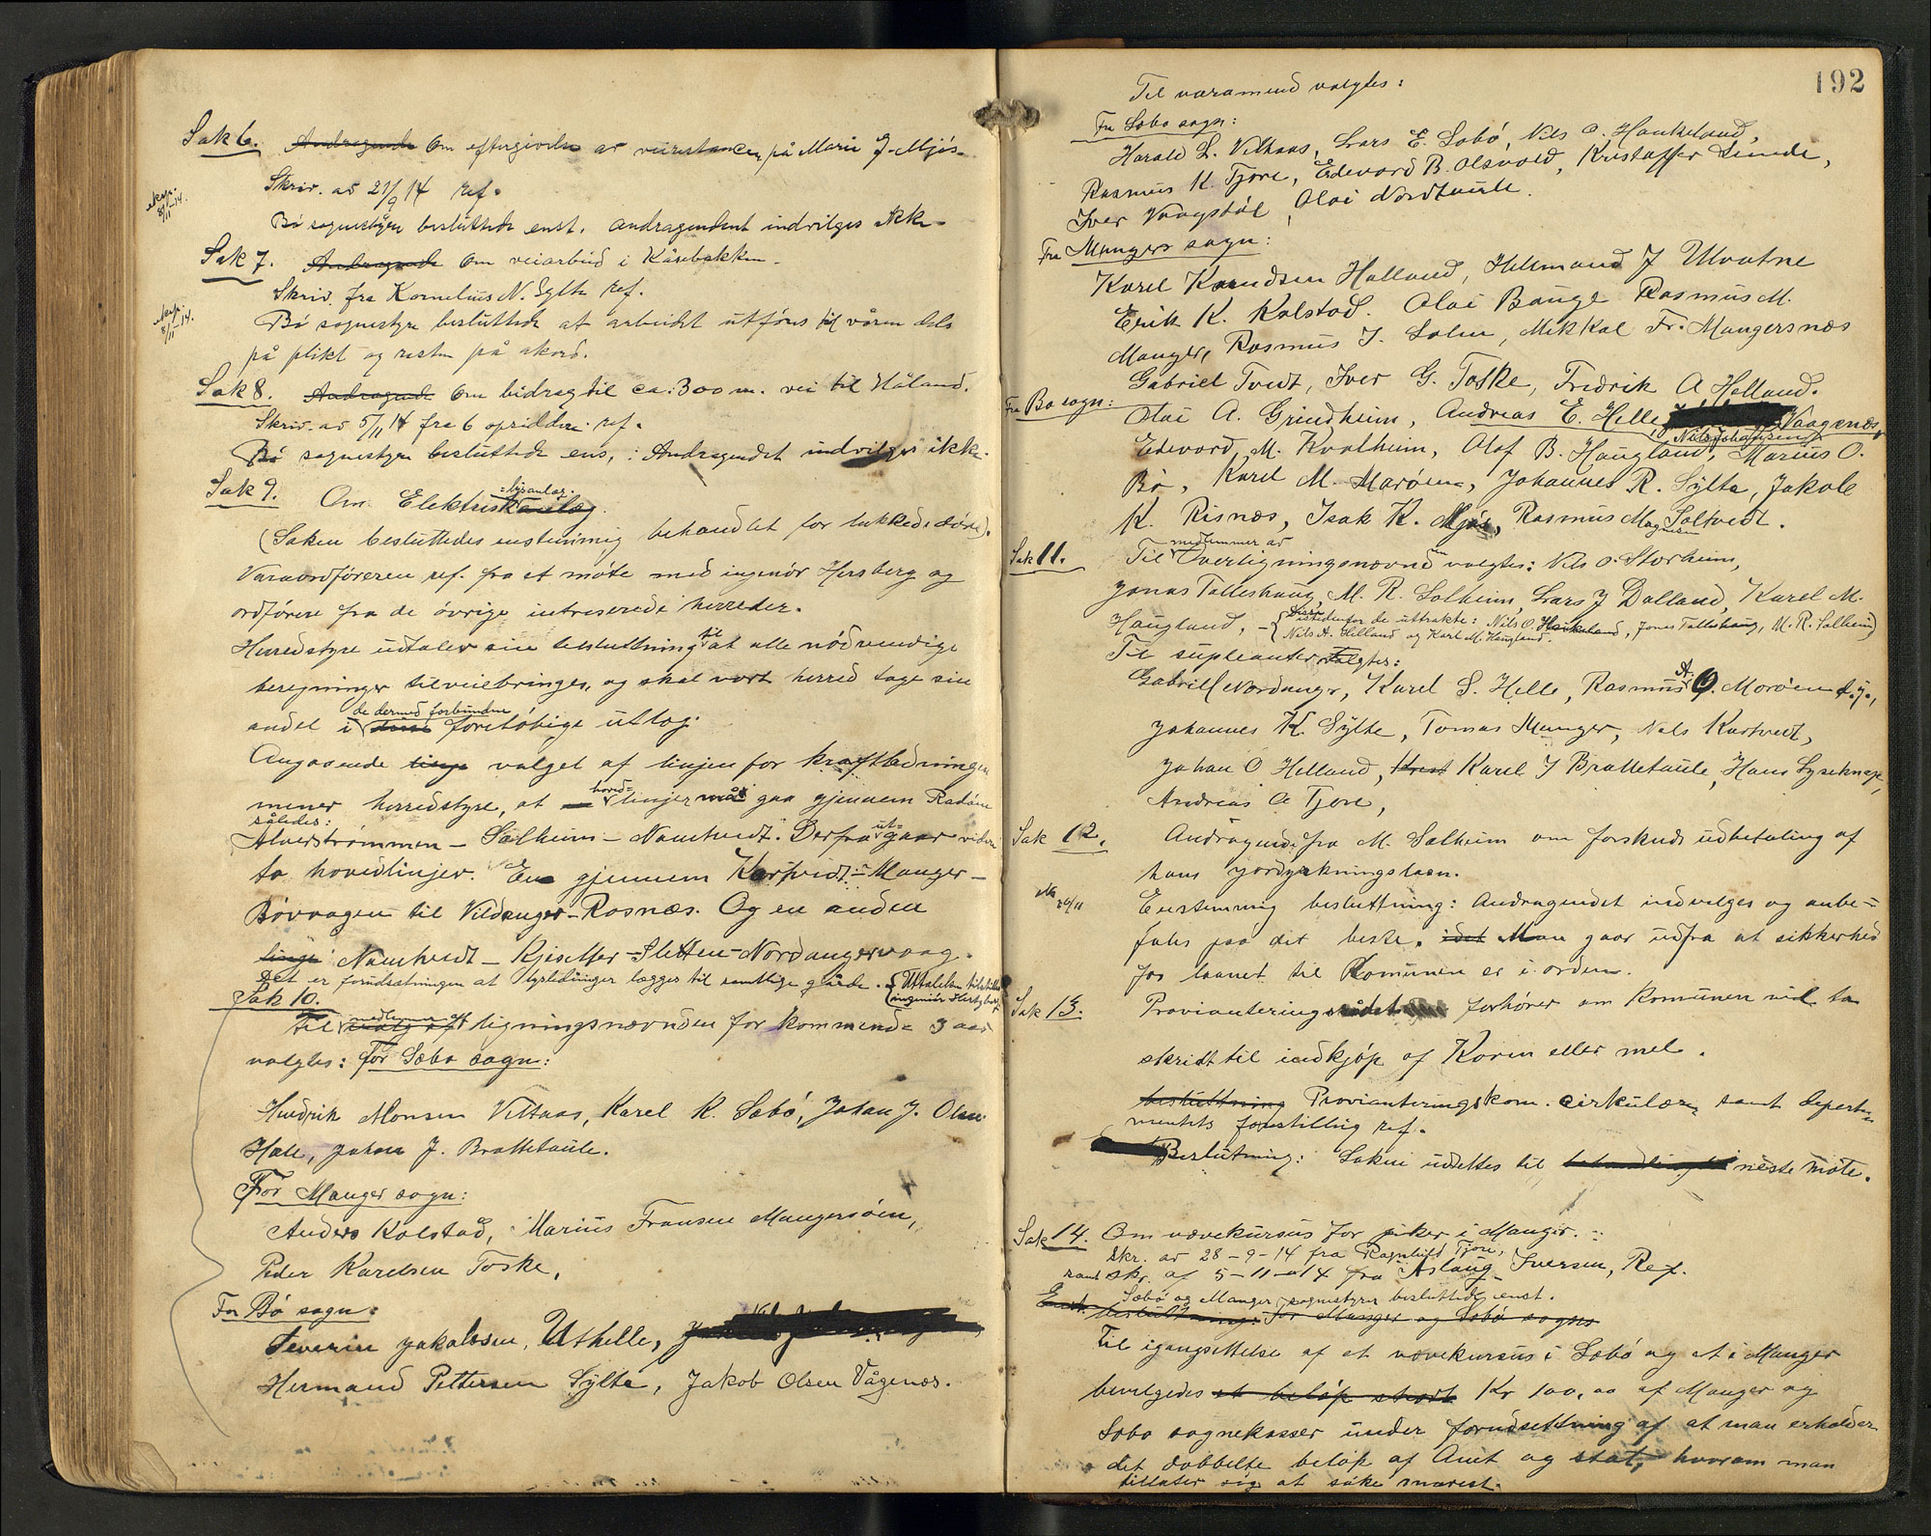 Sak 6. Andragende Om eftergivelse av veirestancen på Marie J. Mjøs.
Skriv. av 21/9 14 ref.
eksp. 8/11-14.
Bø sognestyre besluttede enst. andragendent indvilges ikke.
Sak 7. Andragende Om veiarbeid i Kårebakken.
Skriv. fra Kornelius N. Sylte ref.
eksp. 8/11-14.
Bø sognestyre besluttede at arbeidet utføres til våren dels
på plikt og resten på akord.
Sak 8. Andragende Om bidrag til ca: 300 m. vei til Håland.
Skriv. av 5/11 14 fra 6 opsiddere ref.
Bø sognestyre besluttede ens, : Andragendet indvilges ikke.
Sak 9. Om Elektrisk anlæg. lysanlæg.
(Saken besluttedes enstemmig behandlet for lukkede døre).
Varaordføreren ref. fra et møte med ingeniør Hersberg og
ordførere fra de øvrige intreserede herreder.
Herredstyre udtaler sin beslutning til at alle nødvendige
beregninger tilveiebringes, og skal vort herred tage sin
andel i de dermed forbundne foreløbige utlæg.
Angaaende linje valget af linjen for kraftledningen
mener herredstyre, at hoved- linjer må gaa gjennem Radøen
således:
Alverstrømmen – Sælheim – Namtvedt. Derfra ut- gaar videre
to hovedlinjer. En gjennem Kartveidt – Manger –
Bøvaagen til Vildanger – Rosnæs. Og en anden
linje Namtvedt – Kjisetter – Sletten – Nordangervaag.
Det er forudsætningen at lysledninger lægges til samtlige gårde. { Uttalelsen tilstilles ingeniør Hertzberg
Sak 10.
Til valg af medlemmer af ligningsnævnden for kommende 3 aar
valgtes: For Sæbo sogn:
Hendrik Monsen Villaas, Karel K. Sæbø, Johan J. Olsen
Hole, Johan J. Brattetaule.
For Manger sogn:
Anders Kolstad, Marius Fransen Mangersøen,
Peder Karelsen Toske,
For Bø sogn:
Severin Jakobsen Uthelle,
Hermand Pettersen Sylte, Jakob Olsen Vågenes.
192
Til varamend valgtes:
Fra Sæbo sogn:
Harald L. Villaas, Lars E. Sæbø, Nils O. Haukeland,
Rasmus K. Tjore, Edevard B. Olsvold, Kristoffer Lunde,
Iver Vaagstøl, Olai Nordtaule.
Fra Manger sogn:
Karel Knudsen Halland, Hermand J Ulvatne
Erik K. Kolstad. Olai Bauge Rasmus M.
Manger, Rasmus J. Solem, Mikkal Fr. Mangersnæs
Gabriel Tvedt, Iver G. Toske, Fredrik A Helland.
Fra Bø sogn: Olai A. Grindheim, Andreas E. Helle, Nils Johansen Vaagenæs,
Edevard M. Kvalheim, Olaf B. Haugland, Marius O.
Bø, Karel M. Marøen, Johannes R. Sylta, Jakob
K. Risnæs, Isak K. Mjøs, Rasmus Magnesen Soltvedt.
Sak 11. Til medlemmer av Overligningsnævnden valgtes: Nils O. Storheim,
Jonas Tolleshaug, M. R. Solheim, Lars J Dalland, Karel M.
Haugland, – { istedenfor de uttrakte: Nils O. Haukeland, Jonas Tolleshaug, M. R. Solheim
Nils A. Helland og Karl M. Haugland.
Til supleanter valgtes:
Gabriel Nordanger, Karel S. Helle, Rasmus A. O. Marøen d.y.,
Johannes K. Sylte, Tomas Manger, Nils Kartvedt,
Johan O Helland, Karel J Brattetaule, Hans Lyseknap,
Andreas A Tjore,
Sak 12. Andragende fra M. Sælheim om forskuds udbetaling af
hans jorddyrkningslaan.
Enstemmig beslutning: Andragendet indvelges og anbe-
fales paa det beste. idet Man gaar udfra at sikkerhed
for laanet til Komunen er i orden.
Sak 13. Provianteringsrådet forhører om komunen vil ta
skridt til indkjøp af Korn eller mel.
beslutning Provianteringskom. cirkulære samt departe-
mentets forestilling ref.
Beslutning: Saken udsettes til behandling neste møte.
Sak 14. Om vævekursus for piker i Manger. :
Skr. av 28-9-14 fra Ragnhild Tjore,
samt skr. af 5-11-14 fra Aslaug Iversen, Ref.
Sæbø og Manger sognestyrer besluttede enst.
Enst. beslutning: For Manger og Sæbø sogne
Til igangsettelse af et vævekursus i Sæbø og et i Manger
bevilgedes et beløp stort Kr 100,00 af Manger og
Sæbø sognekasser under forudsettning af at man erholder
det dobbelte beløp af Amt og stat, hvorom man
tillater sig at søke snarest.